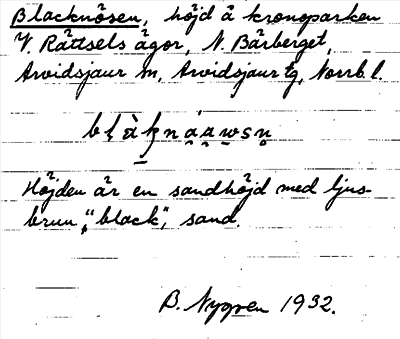 Blacknösen, höjd å kronoparken
V. Rättsels ägor, N. Bärberget,
Arvidsjaur sn, Arvidsjaur tg, Norrb. l.
Höjden är en sandhöjd med ljus-
brun, "black", sand.
B. Nygren 1932.